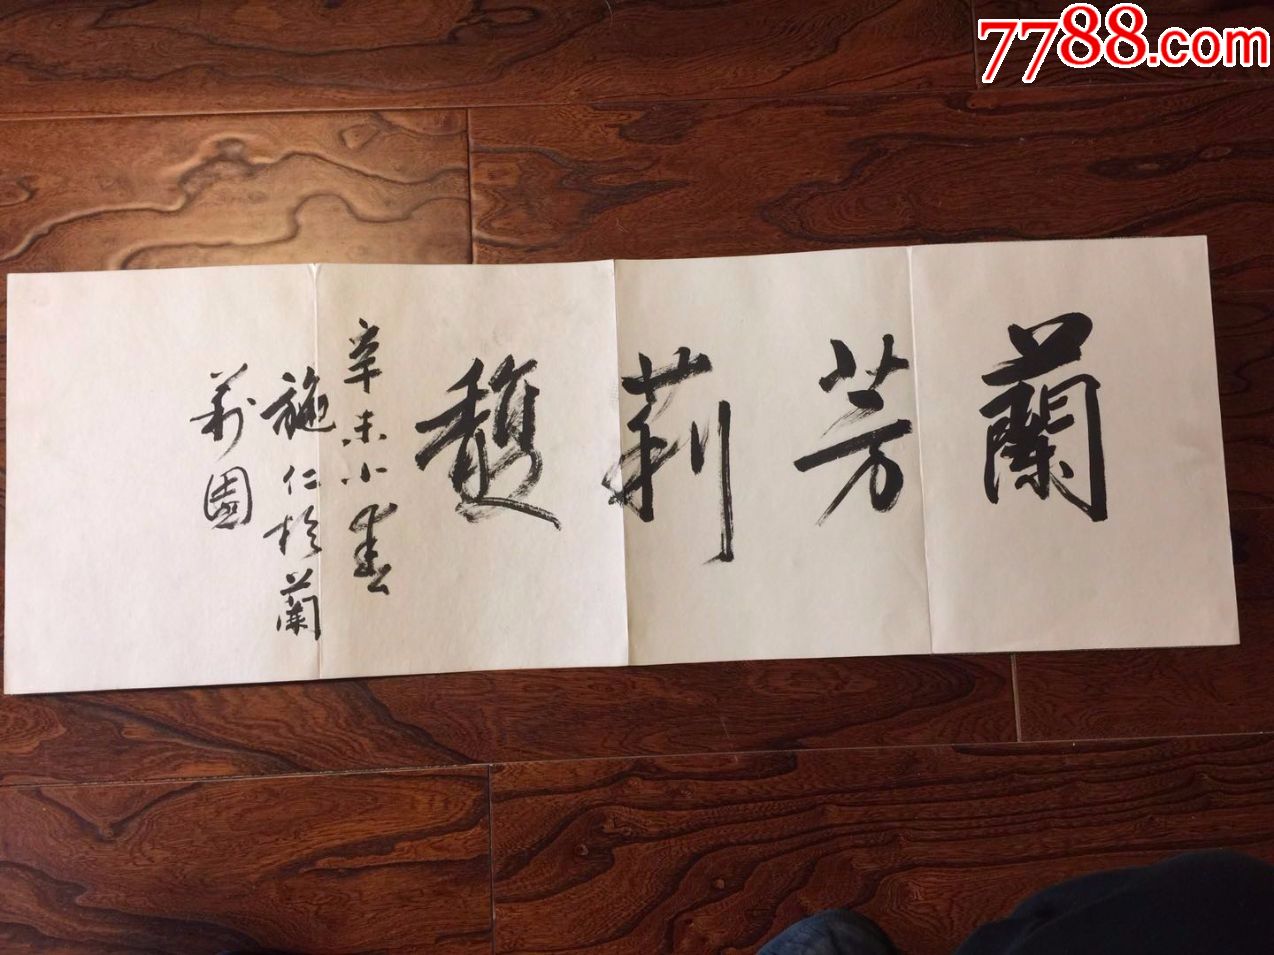 7788.com
蘭芳莉馥
辛未小春
施仁於蘭
莉園